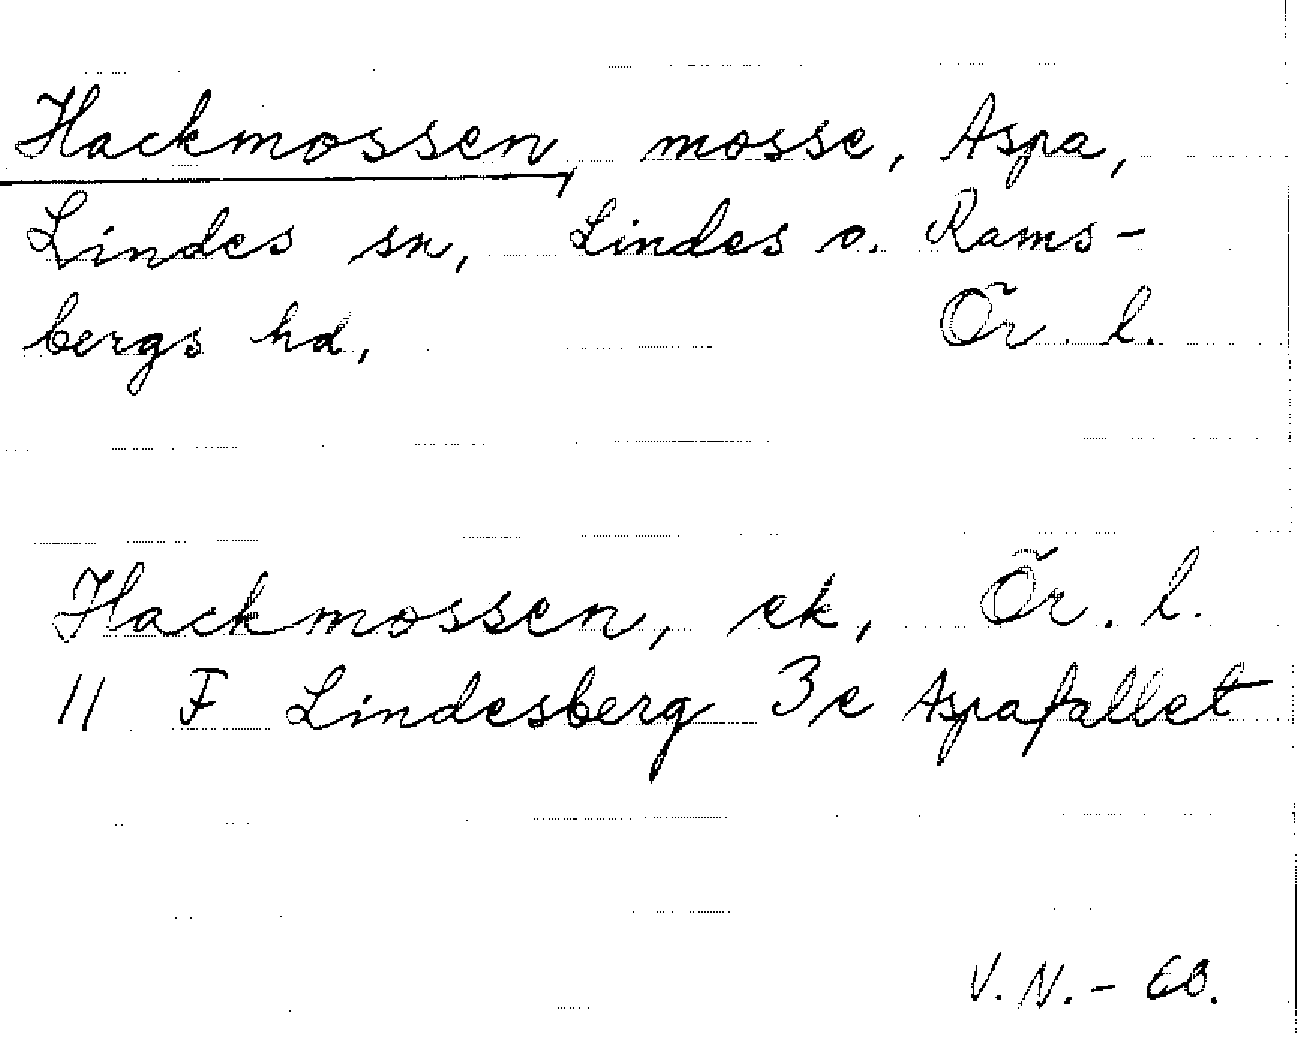 Hackmossen, mosse, Aspa,
Lindes sn, Lindes o. Rams-
bergs hd, Ör. l.
Hackmossen, ek, Ör. l.
11 F Lindesberg 3e Aspafallet
V.N.- EB.